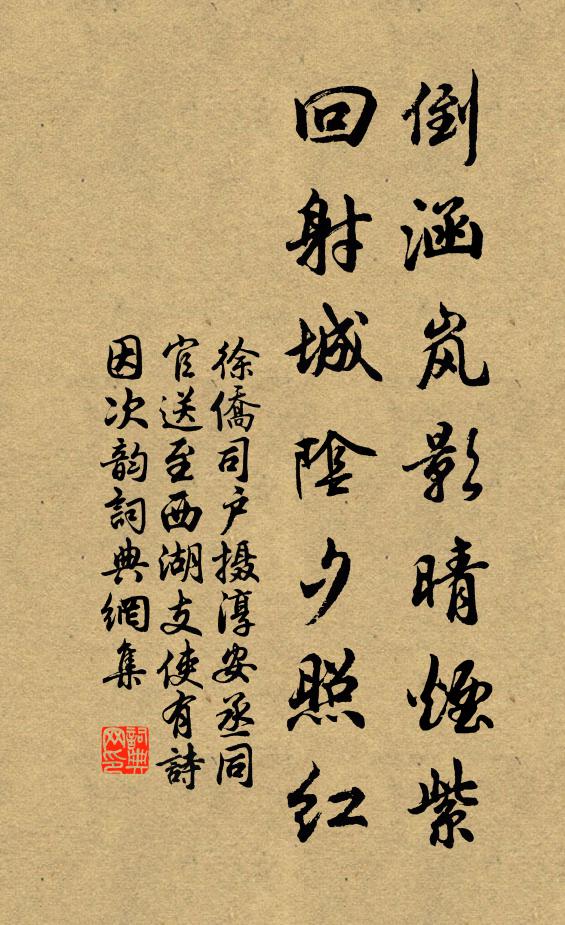 倒涵岚影晴煙紫
回射城陰夕照红
徐僑司户摄淳安丞同
官送至西湖支使有詩
因次韵詞典網集
詞典网印